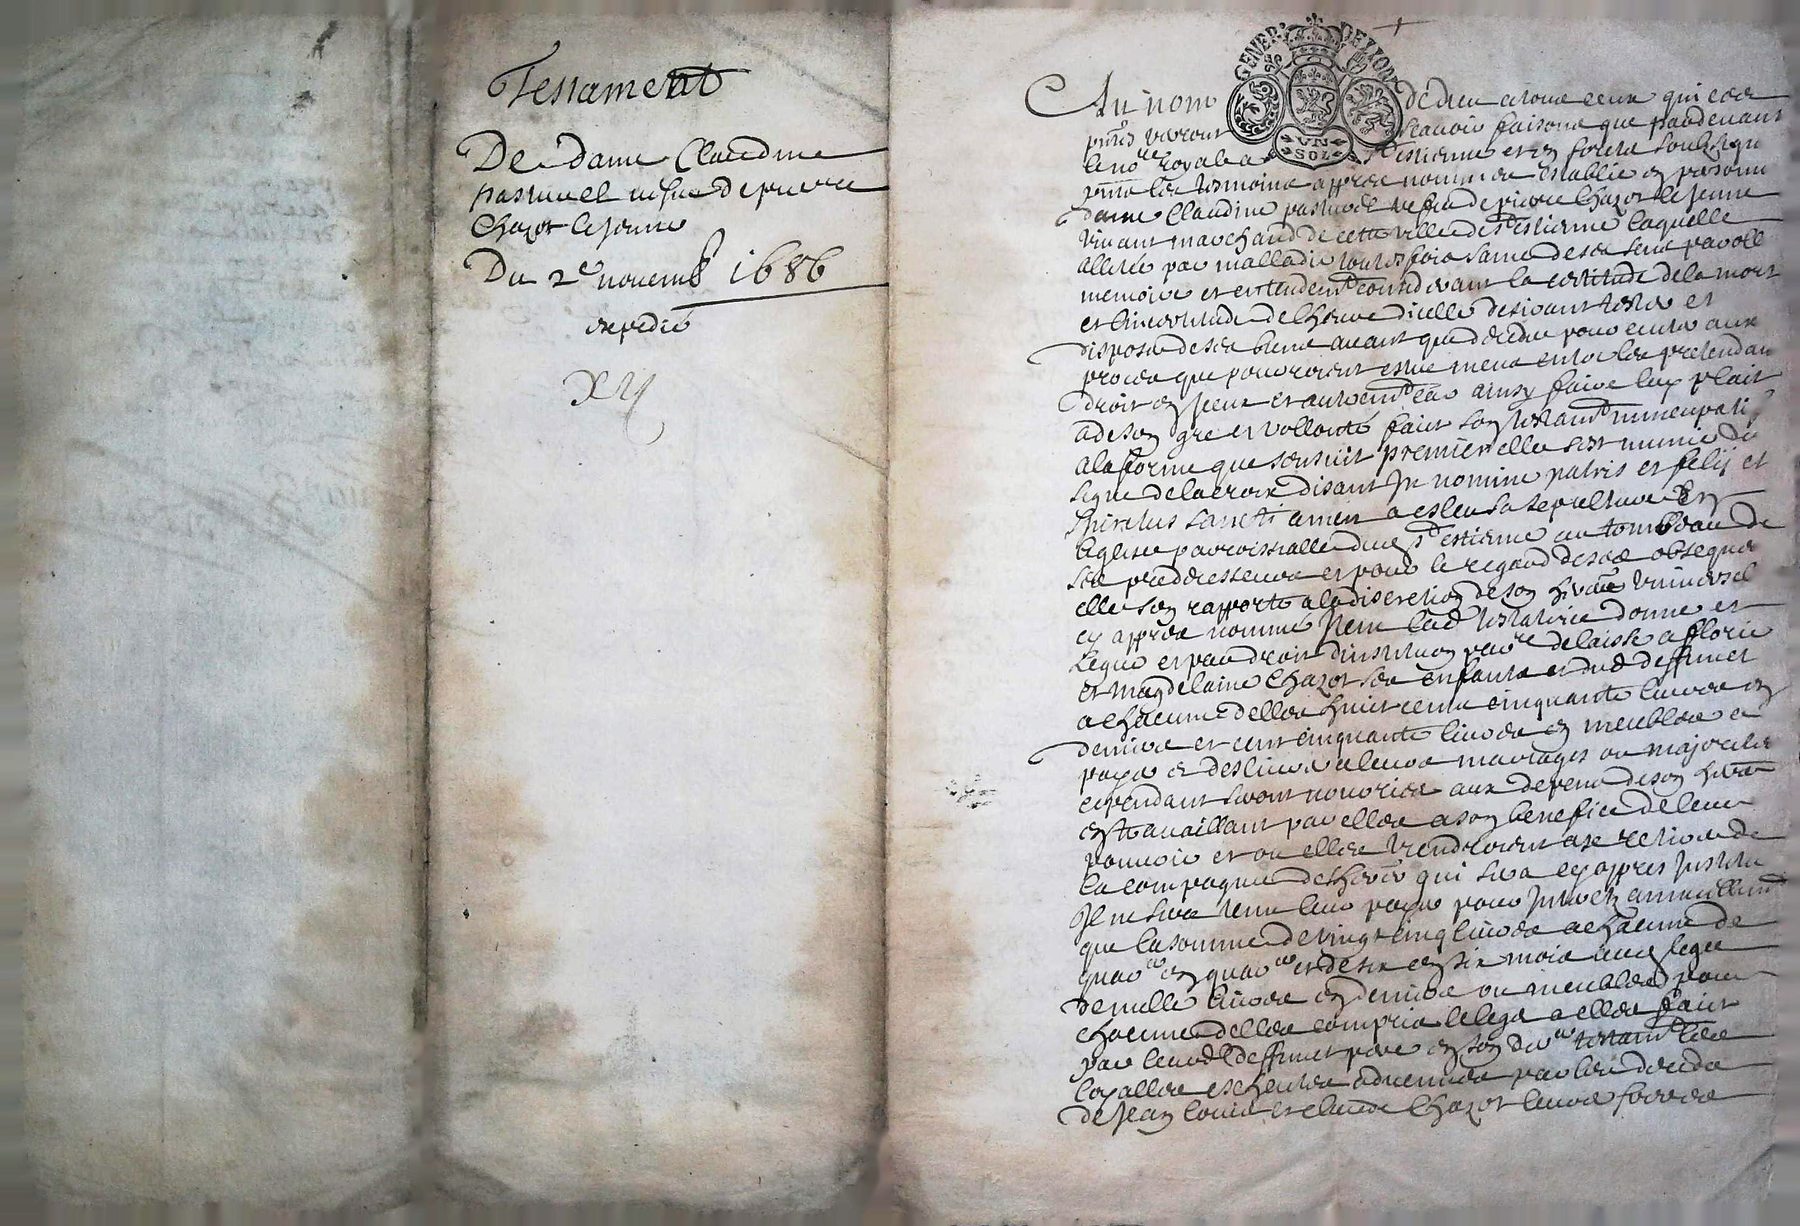 Testament
De dame Claudine
pasturel vefue de pierre
Chazot le jeune
Du 2e novemb 1686
expedié
GENER DE LION
VN
SOL
Au nom de dieu a tous ceux qui ces
pntes verront scauoir faisons que pardeuant
le nore Royal a St estienne en forest soubzsigne
les tesmoins appres nommes establie en personne
dame Claudine pasturel vefue de pierre Chazot le jeune
viuant marchand de cette ville de St estienne laquelle
allitée par malladie toutesfois saine de ses sens parolle
memoire et entendemt considerant la certitude de la mort
et lincertitude de lheure dicelle desirant tester et
disposer de ses biens auant que deceder pour euiter aux
proces que pourroient estre meus entre les pretendans
droit en iceux et autremt ainsy faire luy plait
a de son gre et vollonté fait son testamt nuncupatif
a la forme que sensuit premier elle sest munie du
signe de la croix disant In nomine patris et filij et
spiritus sancti amen a esleu sa sepulture en
leglise parroissialle dud St estienne au tombeau de
ses predecesseurs et pour le regard de ses obseques
elle sen rapporte a la discretion de son hers vniuersel
cy appres nommé Item lad testatrice donne et
legue et par droit dinstitution delaisse a florie
et magdelaine Chazot ses enfants et dud deffunct
a chacune delles huict cents cinquante liures en
deniers et cent cinquante liures en meubles
payer et desliurer a leurs mariages ou majorité
cependant seront nourries aux depens de son
en trauaillant par elles a son benefice de leur
pouuoir et ou elles viendroient a se retirer de
la compagnie de qui sera cy appres Institué
Il ne sera tenu leur payer pour Interetz annuellemt
que la somme de vingt cinq liures a chacune de
et de six en six mois led legue
de mille liures en deniers ou meubles pour
chacune delles compris le legat a elles fait
par leurd deffunct pere en son testamt les
loyalles escheutes aduenues par les deceds
de Jean louis et claude Chazot leurs freres